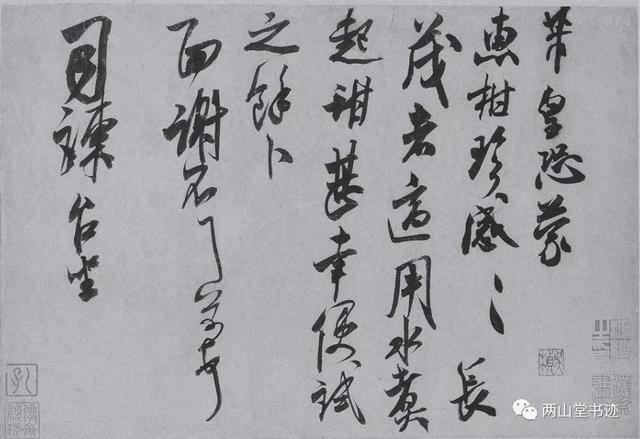 芾皇恐蒙
惠柑珍感〻長
茂者適用水煮
起甜甚幸便試
之餘卜
面謝不一一芾頓首
司諫台坐
两山堂书迹